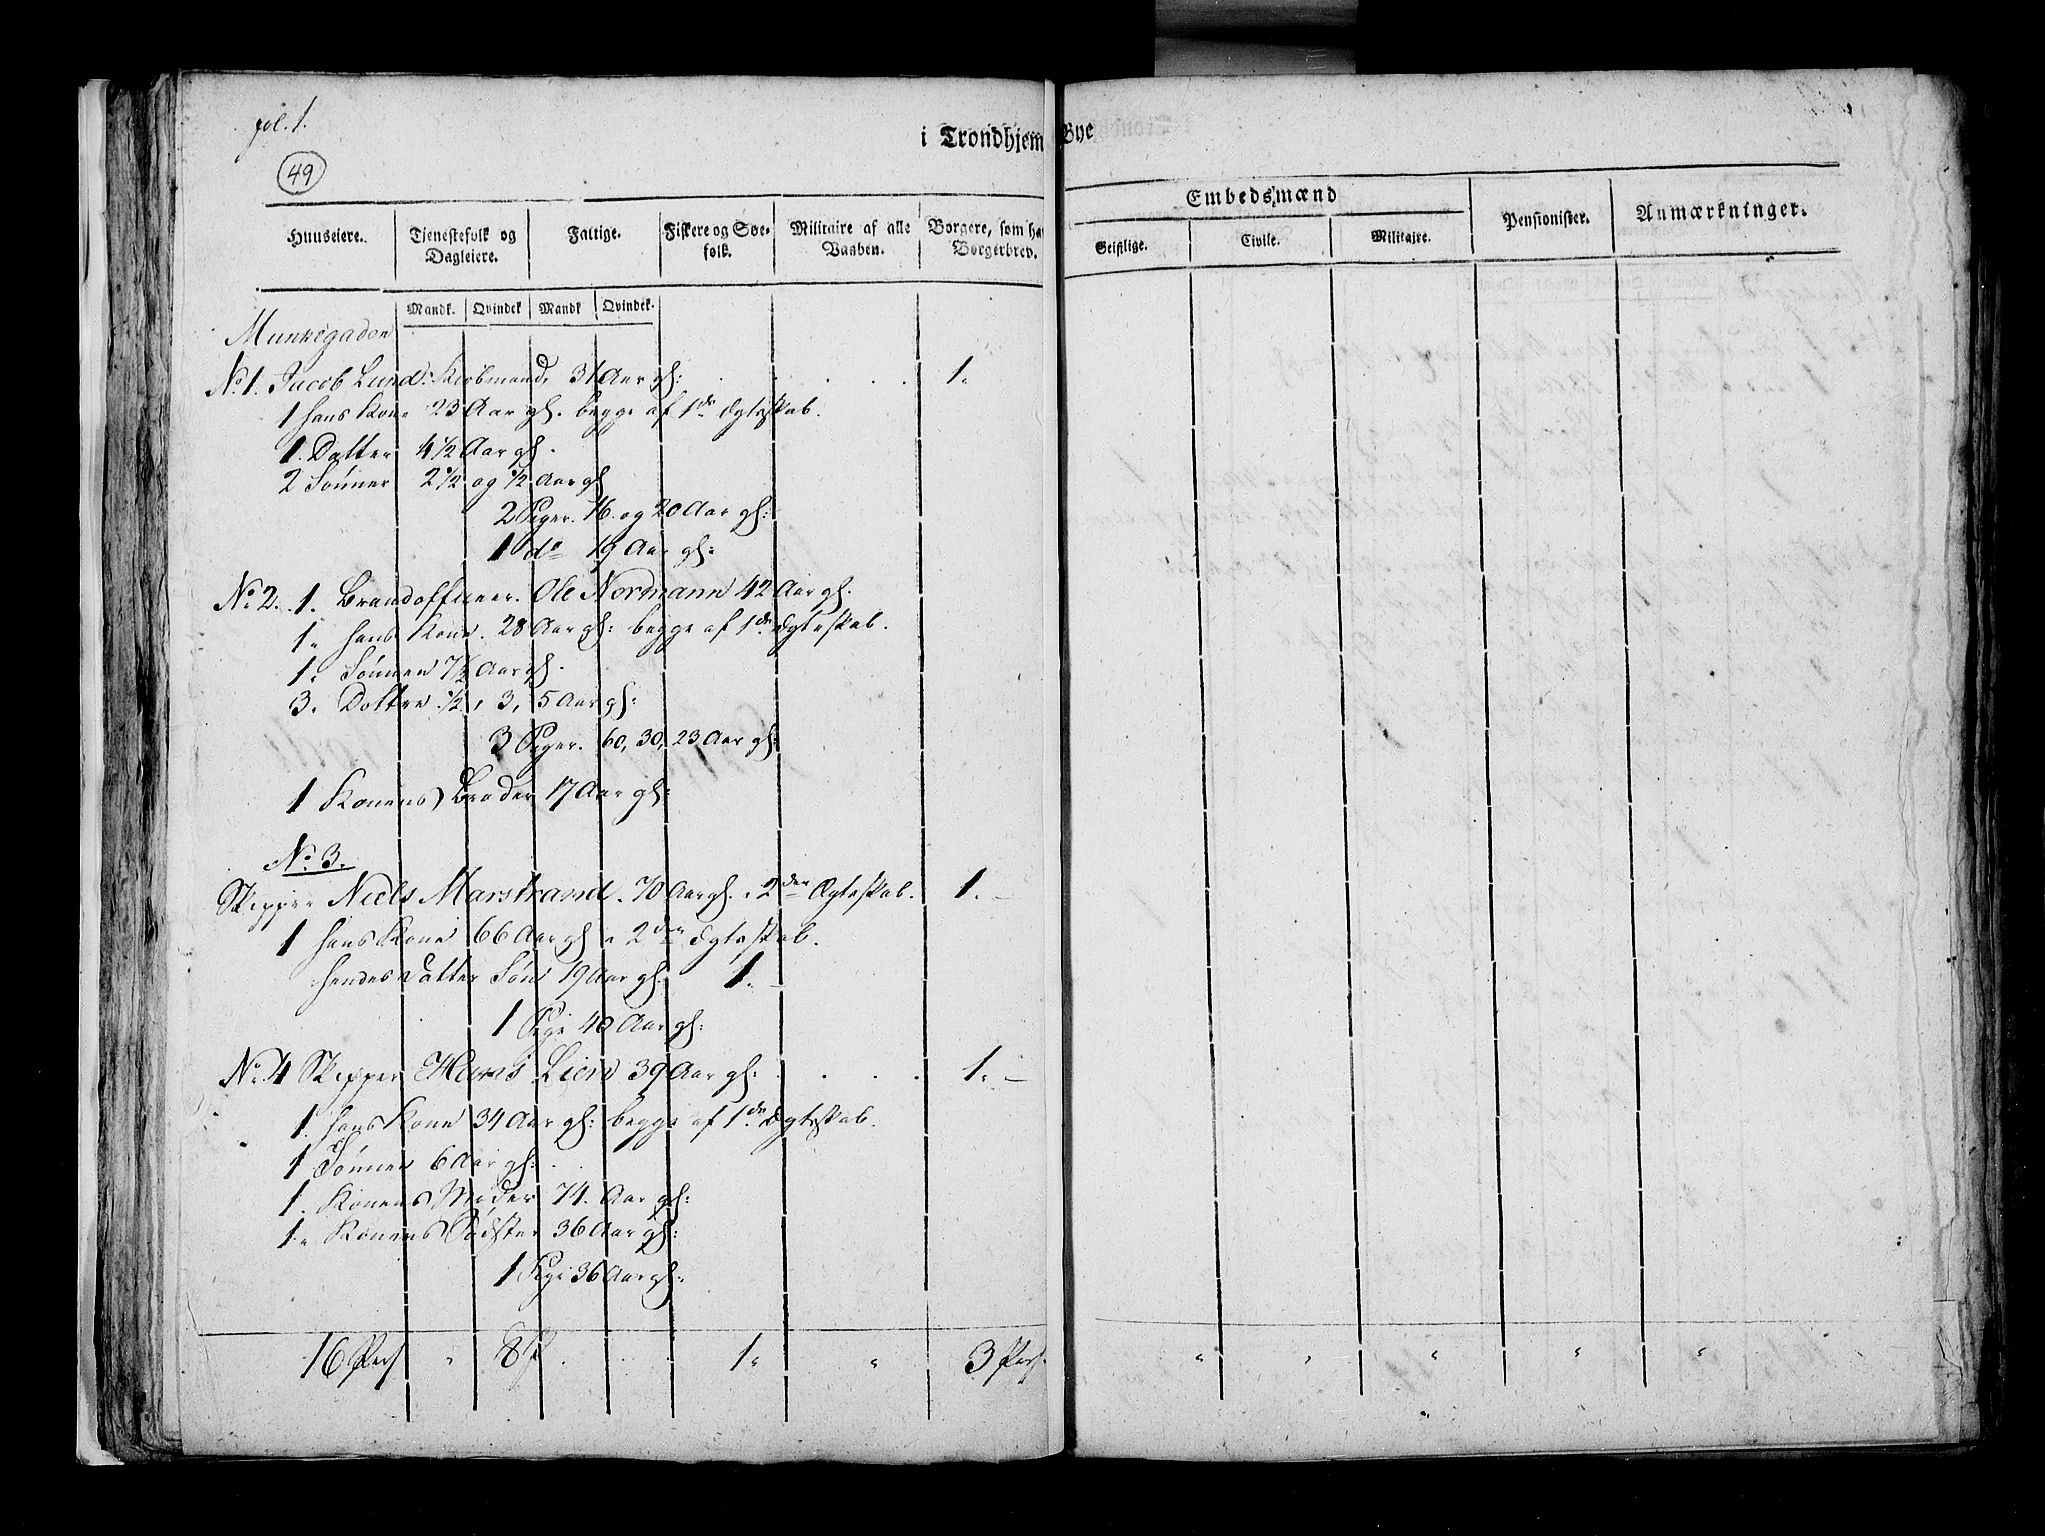 fol. 1.
49
i Trondhjem Bye
Embedsmænd
Huuseiere. Tjenestefolk og Dagleiere. Fattige. Fiskere og Søefolk. Militaire af alle Vaaben. Borgere, som ha Borgerbrev. Geistlige. Civile. Militaire. Pensionister. Anmærkninger.
Mandk. Qvindek Mandk Qvindek.
Munkegaden
No 1. Jacob Lund. Kiøbmand, 31 Aar gl: . . . . 1.
1 hans Kone 23 Aar gl. begge af 1de Ægteskab.
1. Datter 4 1/2 Aar gl.
2 Sönner 2 1/2 og 1/2 Aar gl
2 Piger. 16. og 20 Aar gl:
1 do 19 Aar gl:
No 2. 1. Brandofficeer. Ole Normann 42 Aar gl.
1. hans Kone. 28 Aar gl: begge af 1de Ægteskab.
1. Sönner 7 1/2 Aar gl.
3. Dottre 1/2, 3, 5 Aar gl:
3 Piger. 60, 30, 23 Aar gl:
1 Konens Broder 17 Aar gl:
No 3.
Skipper Niels Marstrand. 70 Aar gl. i 2den Ægteskab. 1.
1 hans Kone 66 Aar gl i 2den Ægteskab.
hendes Datter Sön 19 Aar gl. 1.
1 Pige 40 Aar gl:
No 4 Skipper Hans Lien 39 Aar gl: . . . 1.
1. hans Kone 34 Aar gl: begge af 1de Ægteskab.
1 Sönner 6 Aar gl:
1. Konens Moder 74. Aar gl:
1. Konens Södster 36 Aar gl:
1 Pige 36 Aar gl:
16 Pers " 8 P . . . 1. " 3 Pers. " " " " "